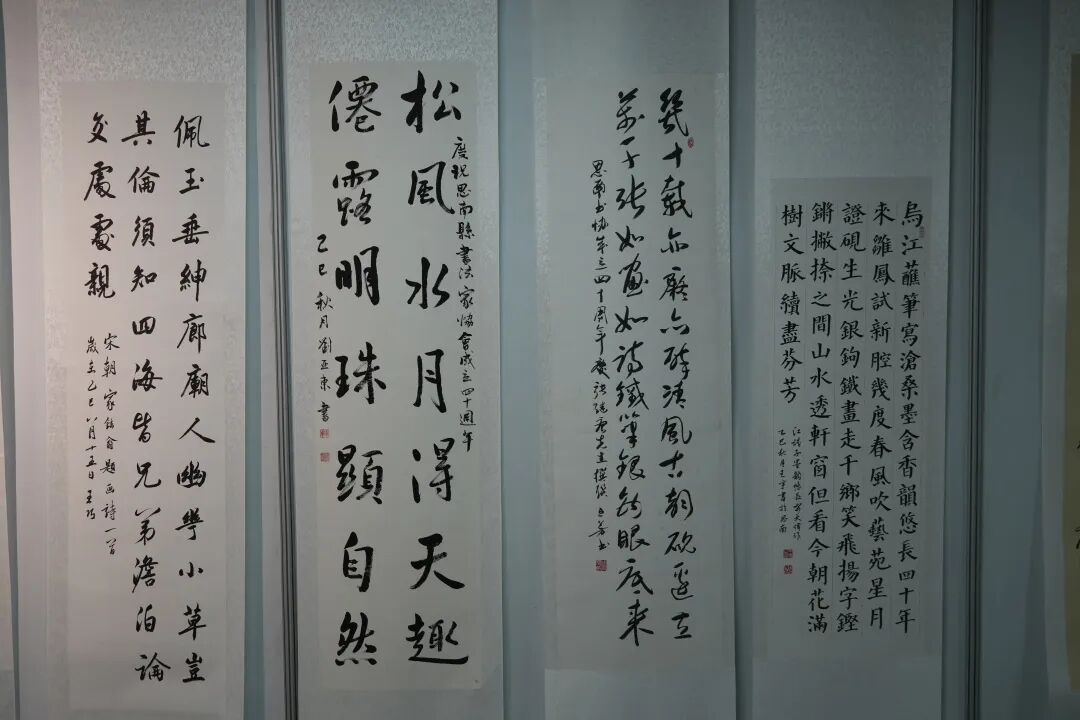 烏江蘸筆寫滄桑墨含香韻悠長四十年
來雛鳳試新腔幾度春風吹藝苑星月
證硯生光銀鉤鐵畫走千鄉笑飛揚字鏗
鏘撇捺之間山水透軒窗但看今朝花滿
樹文脈續盡芬芳
江城子墨韻悠長
乙巳秋月書於思南
幾十載亦癡亦醉清風古韻硯邊立
萬千張如畫如詩鐵筆銀鉤眼底來
思南書協成立四十周年慶張先生撰聯書
松風水月得天趣
慶祝思南縣書法家協會成立四十週年
僊露明珠顯自然
乙巳秋月劉亚東書
佩玉垂紳廊廟人幽小草豈
其倫須知四海皆兄弟澹泊論
交處處親
宋朝家鉉翁題画詩一首
歲在乙巳八月十五日王巧